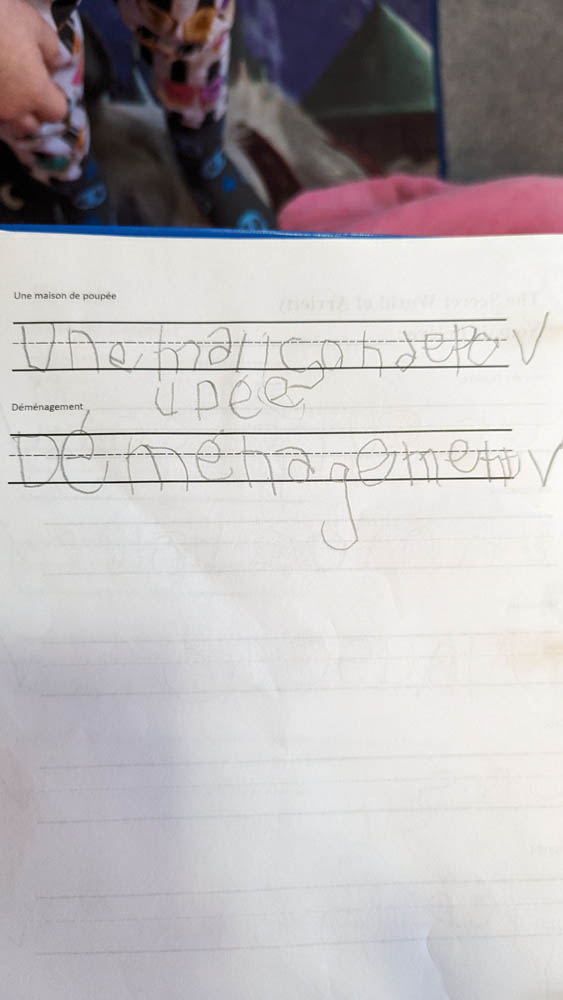 Une maison de poupée
Une maison de po
upée
Déménagement
Déménagement